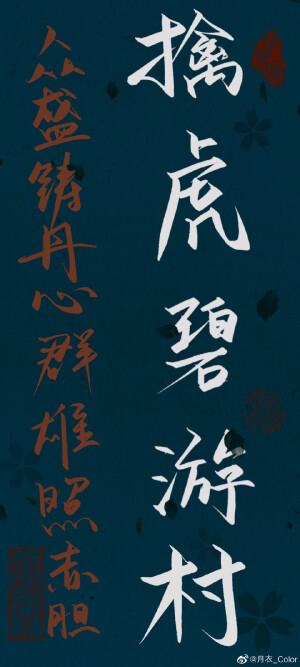 擒虎碧游村
众盛铸丹心群雄照赤胆
@月衣_Color